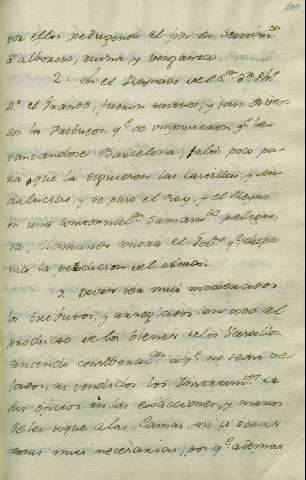 por ellos reduxeron al fin su
de alboroto, ruina, y venganza.
2. en el Reynado del S.or D.n Ph.e
4.o el Grande, fueron tantos, y tan
los tributos q.e se impusieron q.e le
vantandose Barcelona, faltó poco pa
ra, que la siguiesen las Castillas, y An
dalucias, y se puso el Rey, y el Reyno
en una sumam.te peligro
sa, llamando
la perdicion del estado.
3. Deven ser mui moderados
los tributos, y arreglados en todo al
producto de los bienes de los Vasallos,
teniendo considerac.on a q.e no sean
ni vendidos los Instrum.tos de
sus oficios en las exacciones, y menos
se les toque a las Camas, ni a otras
cosas mui necesarias, por q.e ademas